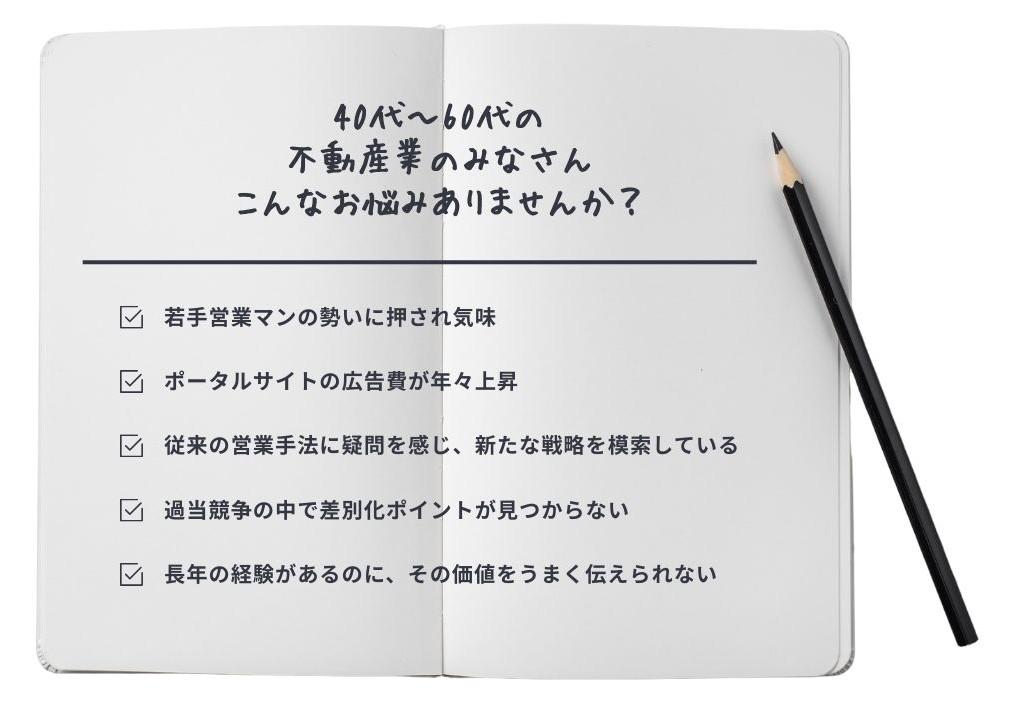 40代～60代の
不動産業のみなさん
こんなお悩みありませんか？
若手営業マンの勢いに押され気味
ポータルサイトの広告費が年々上昇
従来の営業手法に疑問を感じ、新たな戦略を模索している
過当競争の中で差別化ポイントが見つからない
長年の経験があるのに、その価値をうまく伝えられない